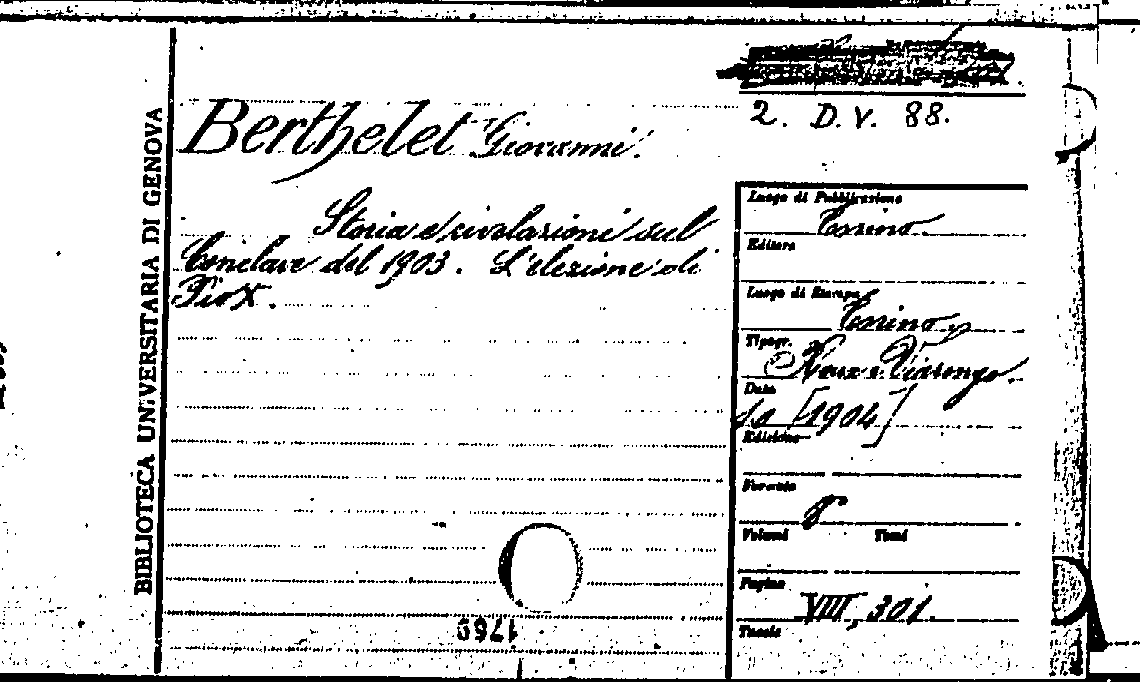 BIBLIOTECA UNIVERSITARIA DI GENOVA
2. D. V. 88.
Berthelet Giovanni.
Storia e rivelazioni sul
Conclave del 1903. L'elezione di
Pio X.
Luogo di Pubblicazione
Torino.
Editore
Luogo di Stampa
Torino,
Tipogr.
Roux e Viarengo.
Data
[1904]
Edizione
Formato
8°
Volumi Tomi
Pagine
VIII, 301.
Tavole
1769